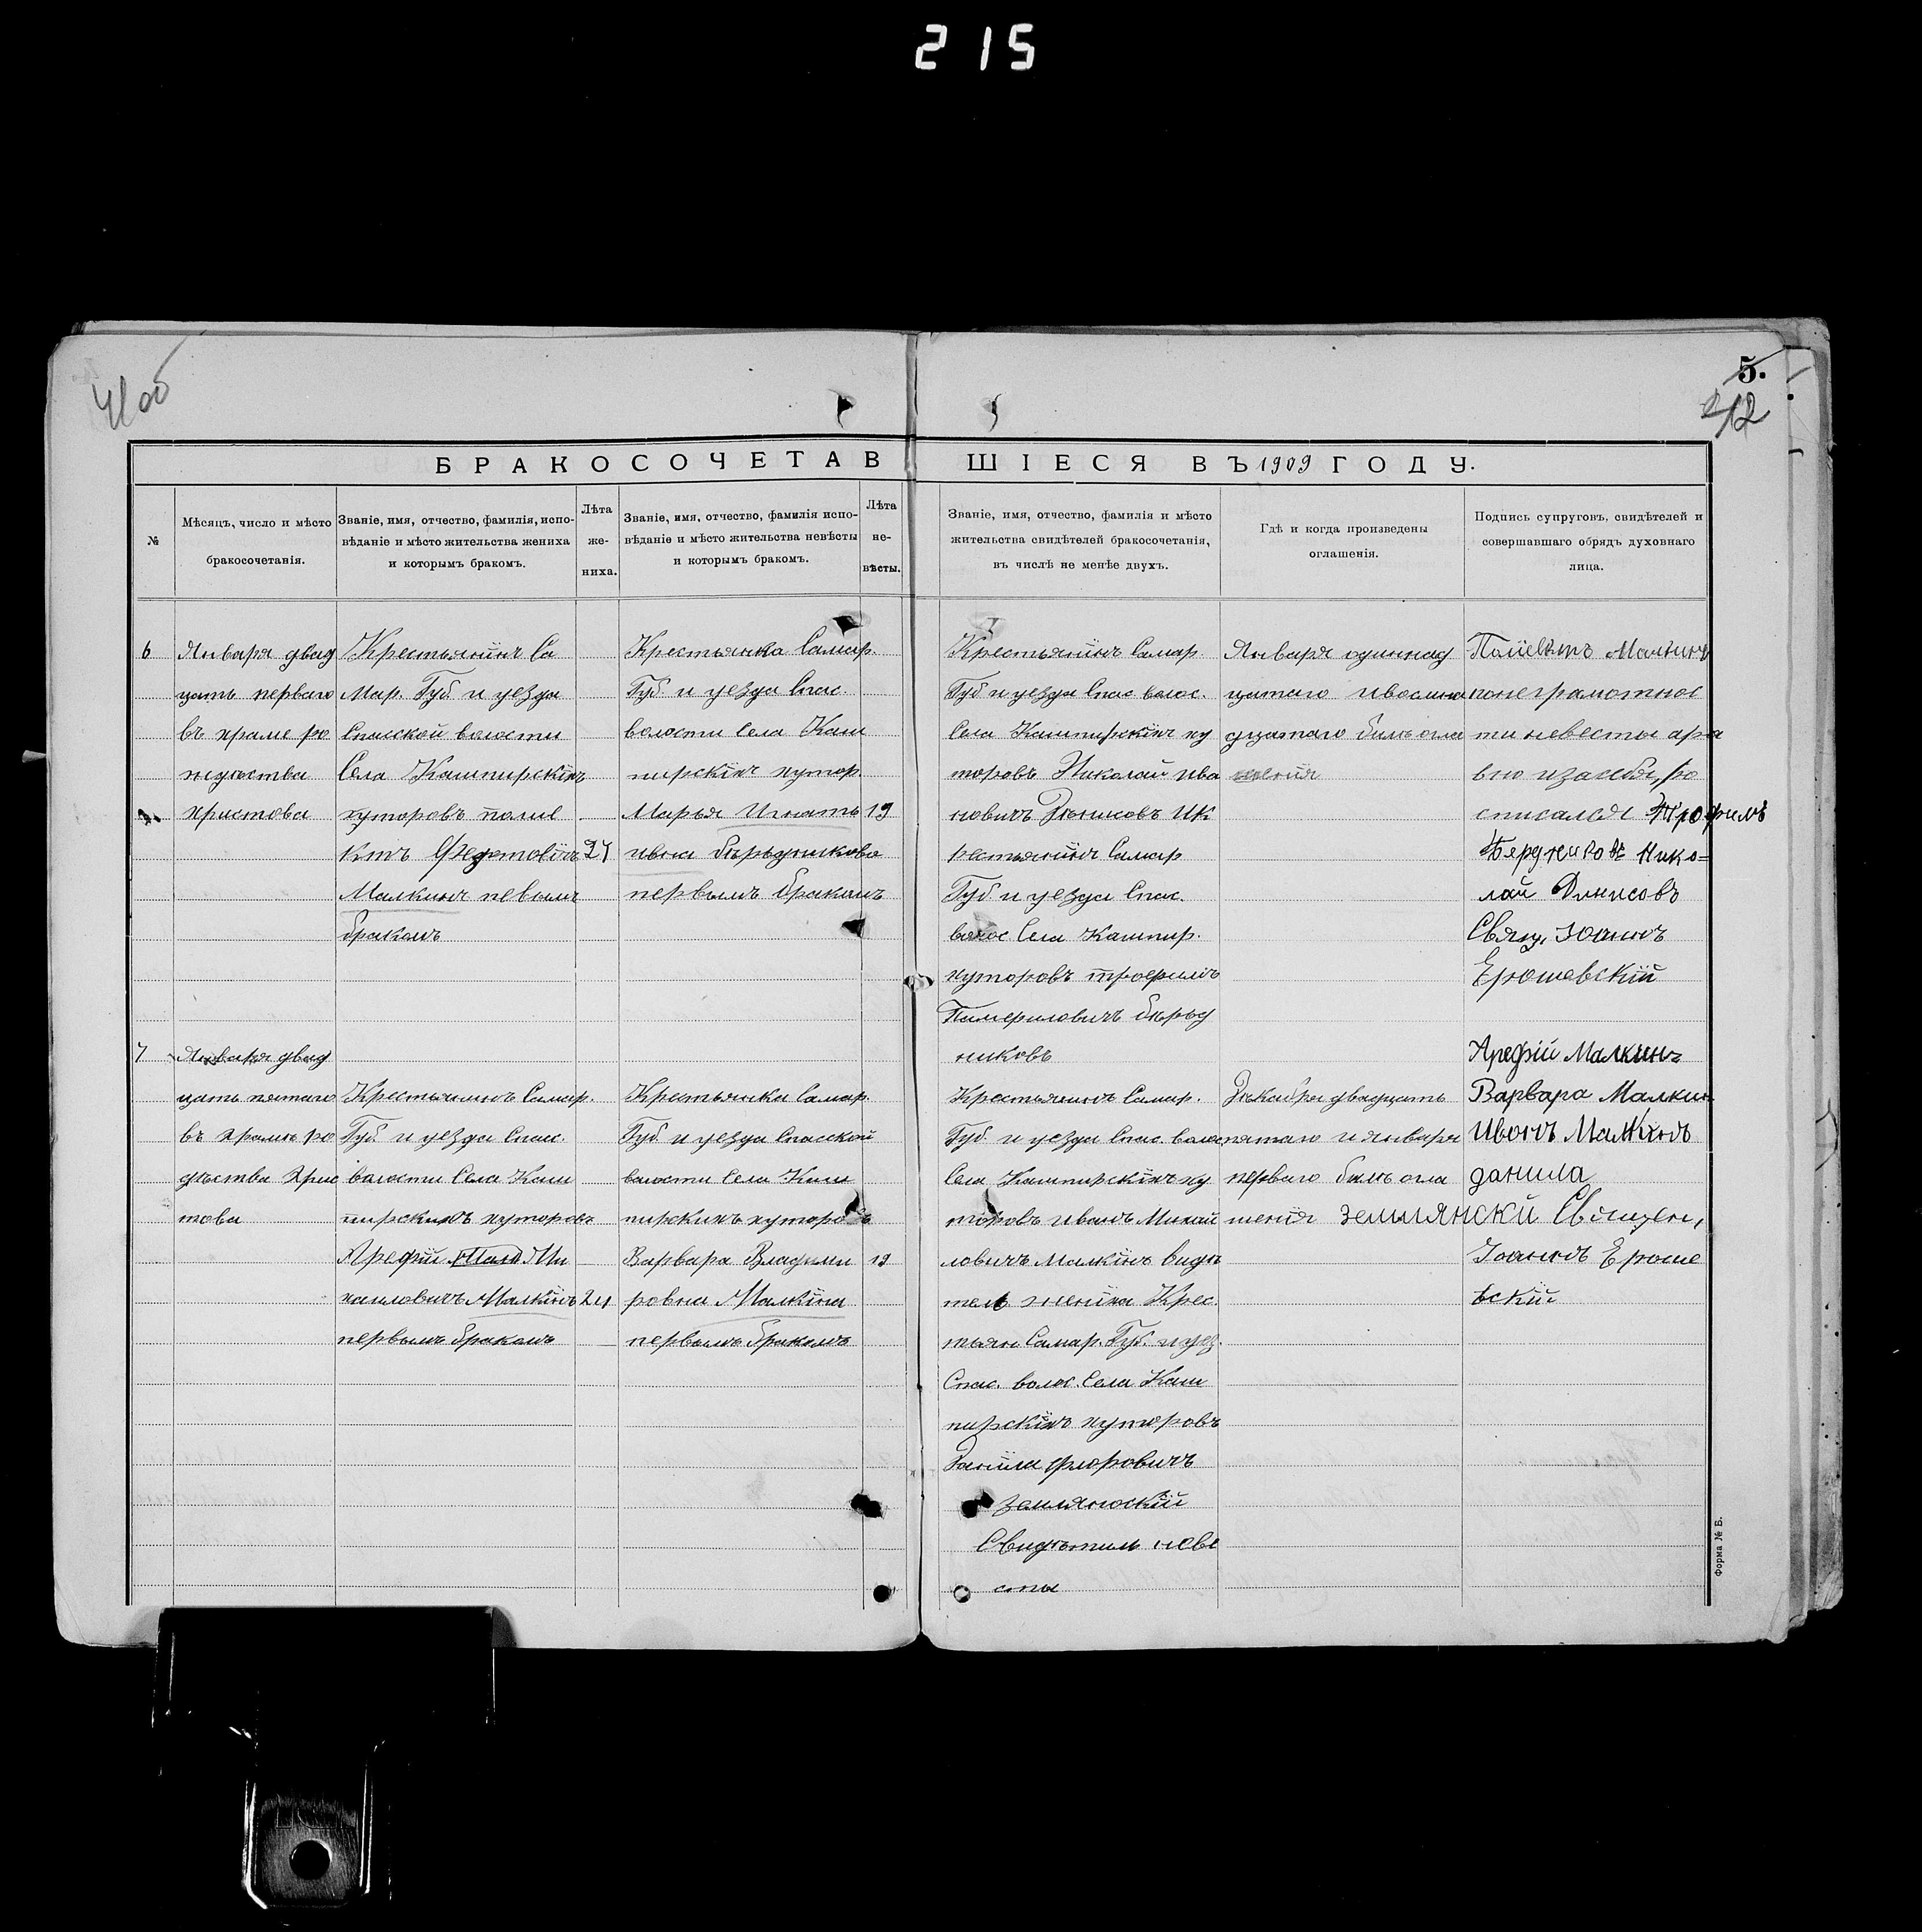 215
5.
212
БРАКОСОЧЕТАВШІЕСЯ ВЪ 1909 ГОДУ.
№
Мѣсяцъ, число и мѣсто
бракосочетанія.
Званіе, имя, отчество, фамилія, испо-
вѣданіе и мѣсто жительства жениха
и которымъ бракомъ.
Лѣта
же-
ниха.
Званіе, имя, отчество, фамилія испо-
вѣданіе и мѣсто жительства невѣсты
и которымъ бракомъ.
Лѣта
не-
вѣсты.
Званіе, имя, отчество, фамилія и мѣсто
жительства свидѣтелей бракосочетанія,
въ числѣ не менѣе двухъ.
Гдѣ и когда произведены
оглашенія.
Подпись супруговъ, свидѣтелей и
совершавшаго обрядъ духовнаго
лица.
6
Января двад
цать перваго
въ храме ро
ждества
христова
Крестьянинъ Са
мар. Губ. и уезда
Спасской волости
Села Кашпирскихъ
хуторовъ
24
Малкинъ
бракомъ
Крестьянка Самар.
Губ. и уезда Спас.
волости Села Каш
пирскихъ хутор.
Марья Игнать
ивна
первымъ бракомъ
19
Крестьянинъ Самар.
Губ и уезда Спас волос.
Села Кашпирскихъ ху
торовъ Николай Ива
новичъ Дѣнисовъ и К
рестьянинъ Самар
Губ и уезда Спас.
волос Села Кашпир.
хуторовъ трофимъ
бѣрьд
никовъ
Января одиннад
цатаго и восимна
дцатаго билъ огла
шения
Малкинъ
понеграмотнос
ти невесты
росписался Трофимъ
Бердников Нико=
лай Дѣнисовъ
Свящ. Іоаннъ
Ерошевскій
7
Января двад
цать пятаго
въ храмѣ ро
дѣства Хрис
това
Крестьянинъ Самар.
Губ. и уезда Спас.
волости Села Каш
пирскихъ хуторовъ
Арефий Ми
хаиловичъ Малкинъ
первымъ бракомъ
24
Крестьянка Самар.
Губ и уезда Спасской
волости Села Каш
пирскихъ хуторовъ
Варвара Владими
ровна Малкина
первымъ бракомъ
19
Крестьянинъ Самар.
Губ и уезда Спас. волос
Села Кашпирскихъ ху
торовъ Иванъ Михай
ловичъ Малкинъ видѣ
тель жениха Крес.
тьян Самар. Губ. и уез.
Спас. волос. Села Каш
пирскихъ хуторовъ
Данила
землянский
Свидѣтиль неве
сты
Дѣкабря двадцать
пятаго и января
перваго билъ огла
шения
Арефій Малкинъ
Варвара Малкин
Иванъ Малкинъ
данила
землянски Священ,
Іоаннъ Ероше
вскій
Форма № Б.